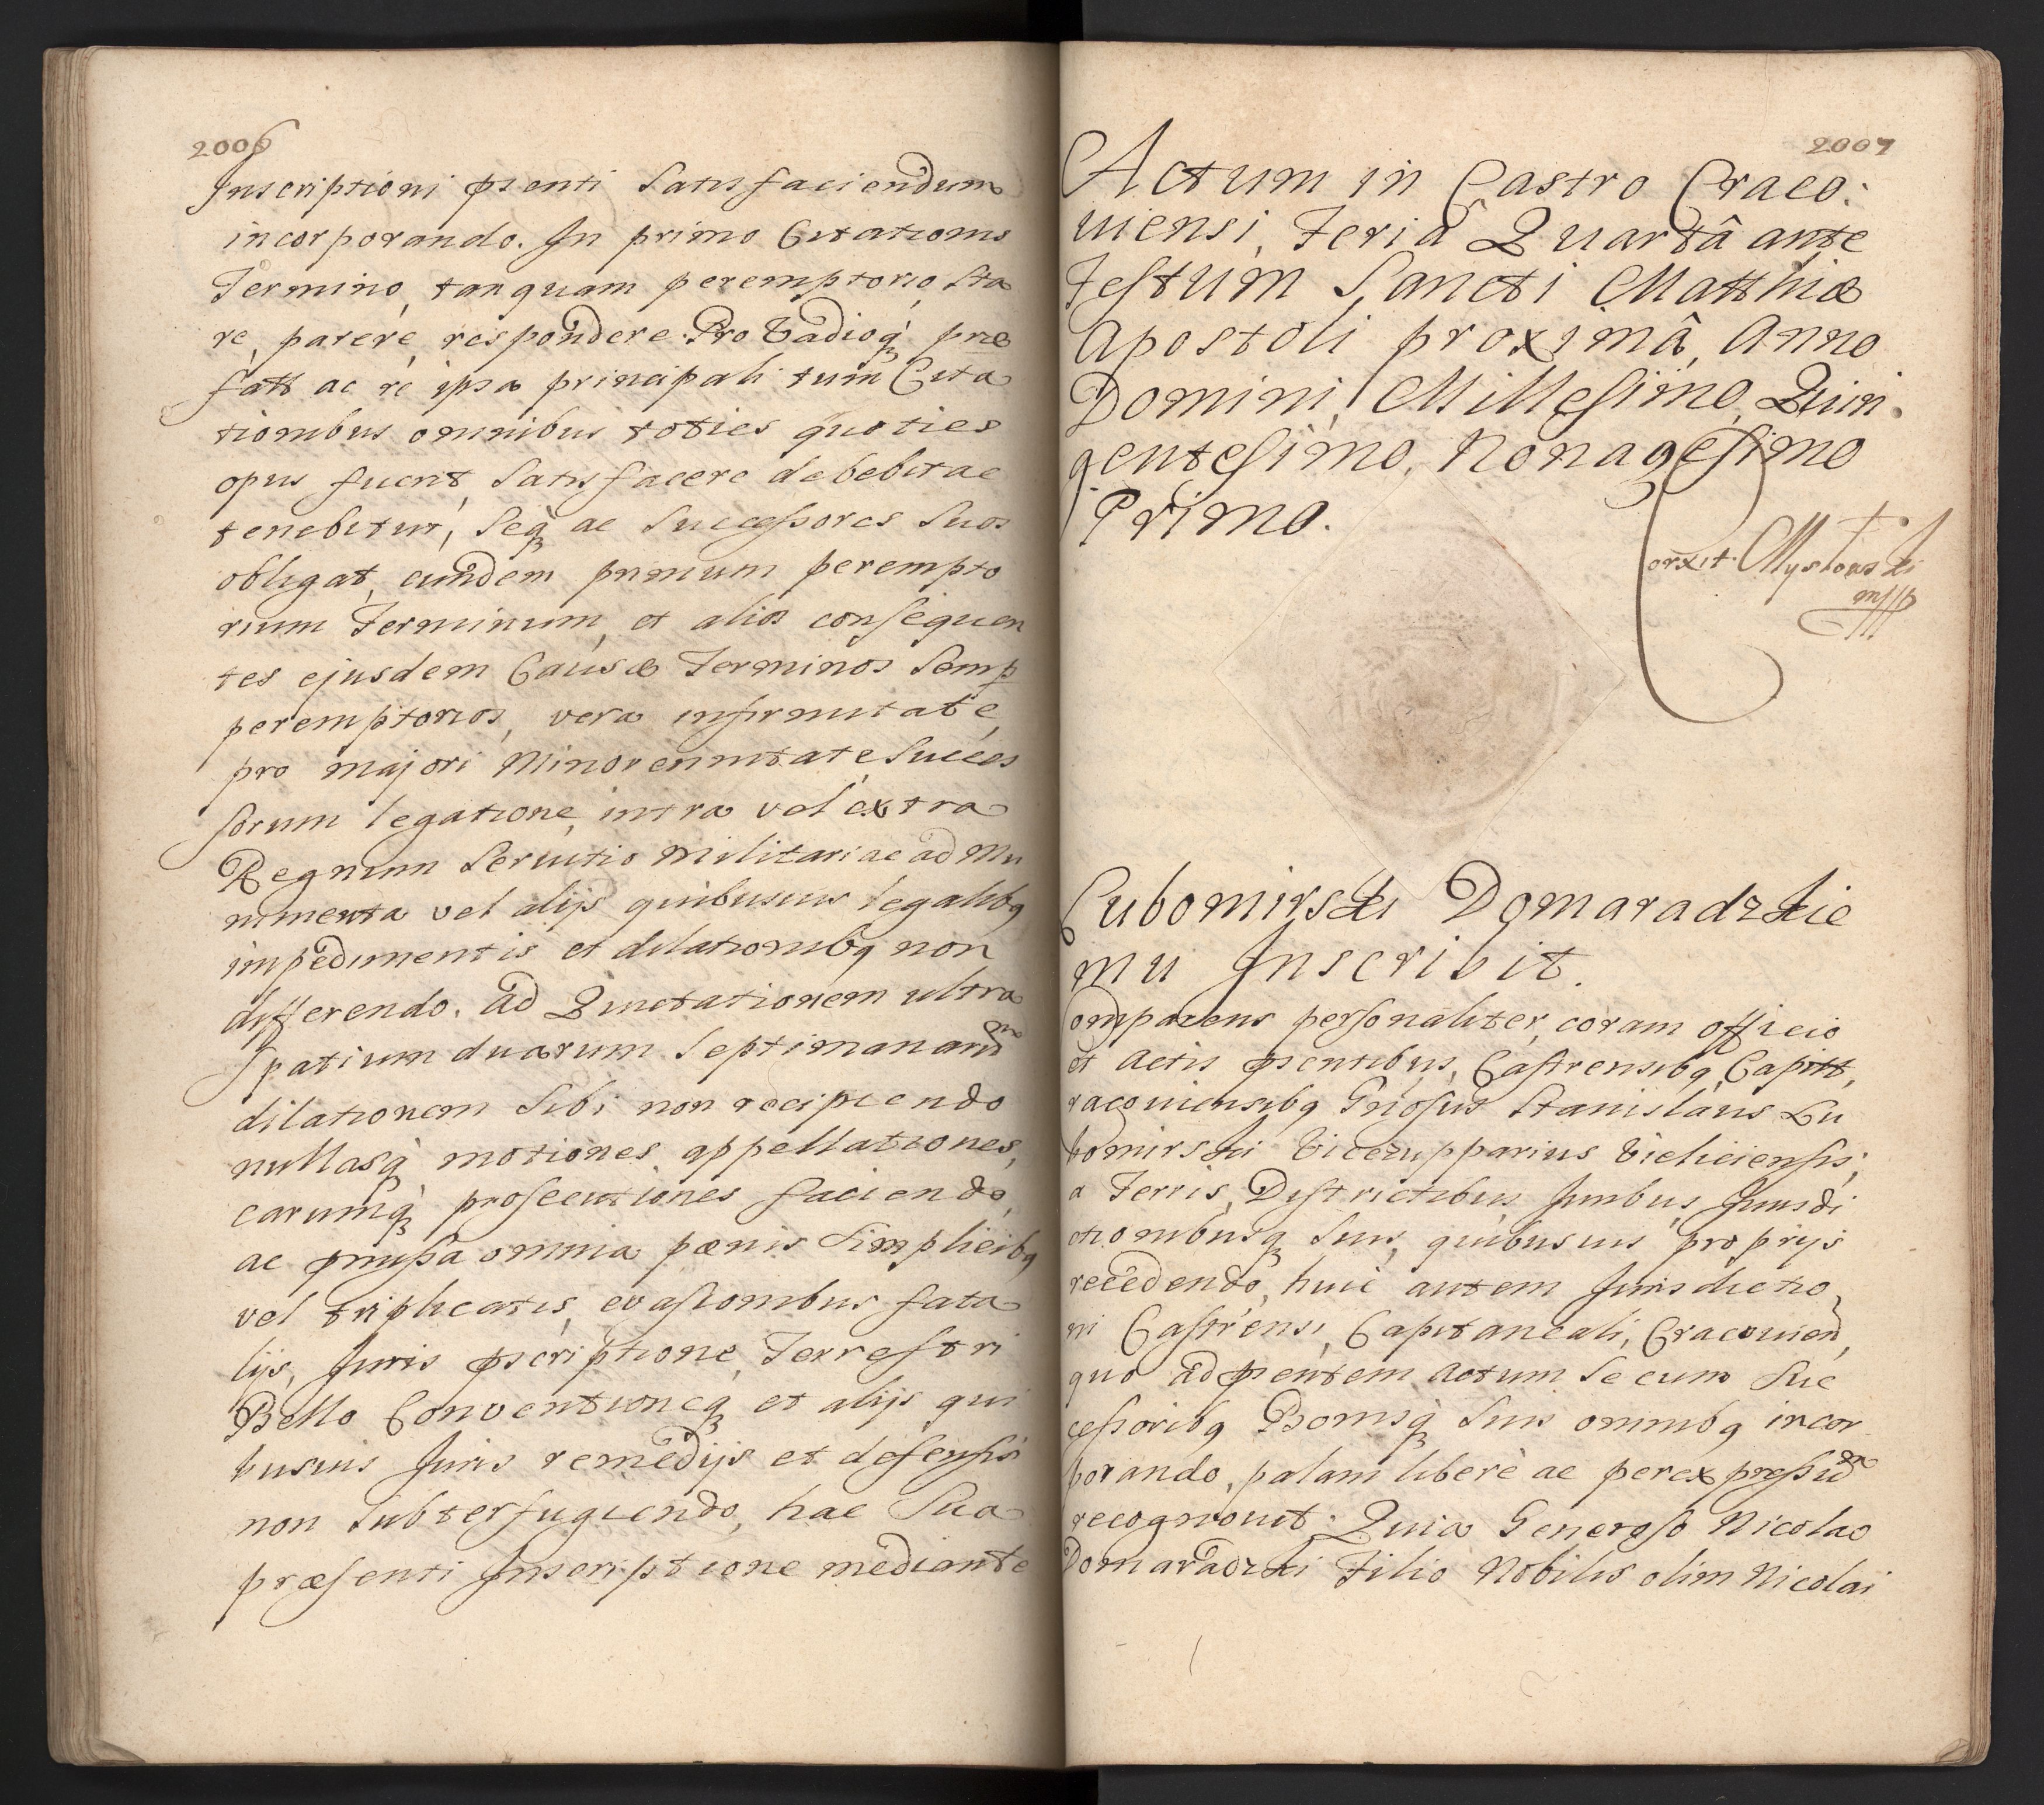 2006
Inscriptioni pnti Satisfaciendum
incorporando. In primo Citationis
Termino, tanquam peremptorio, Sta
re, parere, respondere. Pro Vadioq́ præ
fatt ac re ipsa principali tum Cita
tionibus omnibus toties quoties
opus fuerit, Satisfacere debebit ac
tenebitur, Seq́ ac Successores Suos
obligat, eundem primum perempto
rium Terminum, et alios consequen
tes ejusdem Causæ Terminos Semp
peremptorios, vera infirmitate,
pro majori Minorennitate Succes
sorum legatione, intra vel extra
Regnum Servitio Militari ac ad Mu
nimenta vel alijs quibusuis legalibq
impedimentis et dilationibq non
differendo. ad Quietationem ultra
Spatium duarum Septimanarum
dilationem Sibi non recipiendo
nullasq́ motiones, appellationes,
earumq́ prosecutiones faciendo,
ac pmissa omnia pænis Simplicibq
vel triplicatis, evasionibus fata
lijs, Juris pscriptione, Terrestri
Bello Conventioneq́ et alijs qui
busuis Juris remedijs et defensis
non Subterfugiendo, hac Sua
præsenti Inscriptione mediante
2007
Actum in Castro Craco:
uiensi, Feriâ Quartâ ante
Festum Sancti Matthiæ
Apostoli proximâ, Anno
Domini, Millesimo, Quin.
gentesimo, Nonagesimo
Primo.
Corrxit. Mystowski
mpp
Lubomirski Domaradzkie
mu Inscribit.
omparens personaliter, coram officio
et Actis psentibus, Castrensibq, Capitt,
racouiensibq Gnosus Stanislaus Lu
bomirski Vicezupparius Vieliciensis,
a Terris, Districtibus, Juribus, Jurisdi
ctionibusq́ Suis, quibusuis proprijs
recedendo, huic autem Jurisdictio
ni Castrensi, Capitaneali, Cracouien,
quo ad psentem Actum Se cum Suc
cessoribq Bonisq́ Suis omnibq incor
porando, palam libere ac per expressum
recognouit. Quia Generoso Nicolao
Domaradzki Filio Nobilis olim Nicolai